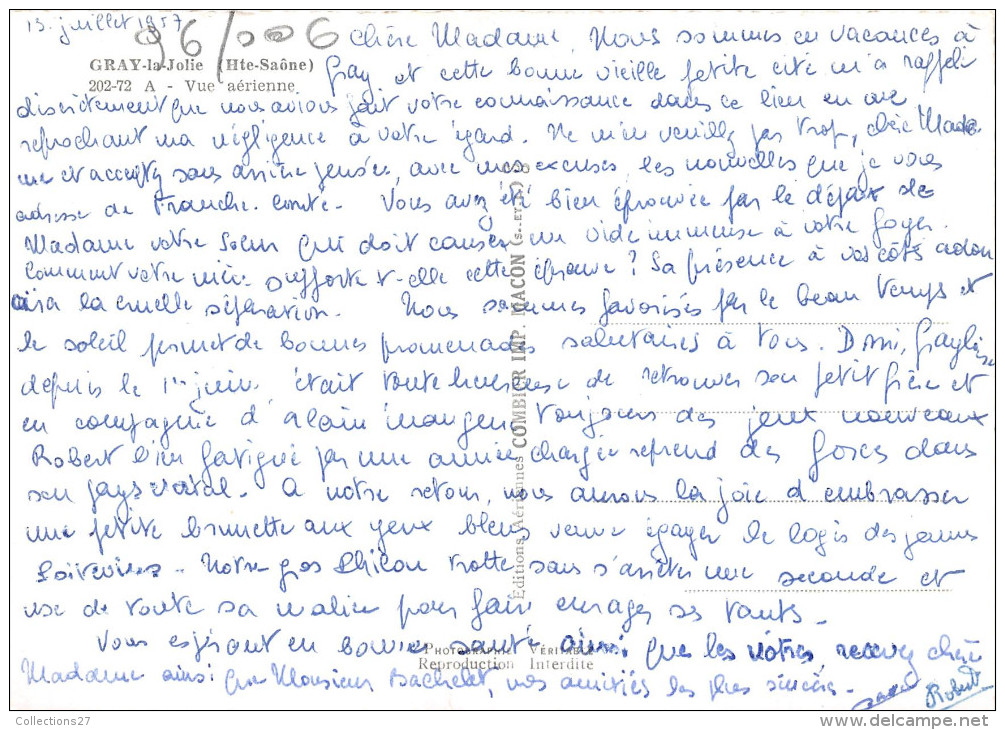 13. juillet 1957
96/006
GRAY-la-Jolie (Hte-Saône)
202-72 A - Vue aérienne
Chère Madame, Nous sommes en vacances à
Gray et cette bonne vieille petite cité m'a rappelé
discrètement que nous avions fait votre connaissance dans ce lieu en me
reprochant ma négligence à votre égard. Ne m'en veuillez pas trop, chère Mada-
me et acceptez sans arrière pensée, avec mes excuses, les nouvelles que je vous
adresse de Franche-Comté. Vous avez été bien éprouvée par le départ de
Madame votre Soeur qui doit causer un vide immense à votre foyer.
Comment votre mère supporte-t-elle cette épreuve ? Sa présence à vos côtés adou
cira la cruelle séparation. Nous sommes favorisés par le beau temps et
le soleil permet de bonnes promenades salutaires à tous. Domi,
depuis le 1er juin était toute heureuse de retrouver son petit frère et
en compagnie d'Alain imagine toujours des jeux nouveaux
Robert bien fatigué par une année chargée reprend des forces dans
son pays natal. A notre retour, nous aurons la joie d'embrasser
une petite brunette aux yeux bleus venue égayer le logis des jeunes
Notre gros trotte sans s'arrêter une seconde et
use de toute sa malice pour faire enrager ses tantes.
Vous espérant en bonne santé ainsi que les vôtres, recevez chère
Madame ainsi que Monsieur Bachelet, nos amitiés les plus sincères.
Robert
Editions Aériennes COMBIER IMP. MACON (S.-ET-L.)
PHOTOGRAPHIE VÉRITABLE
Reproduction Interdite
Collections27